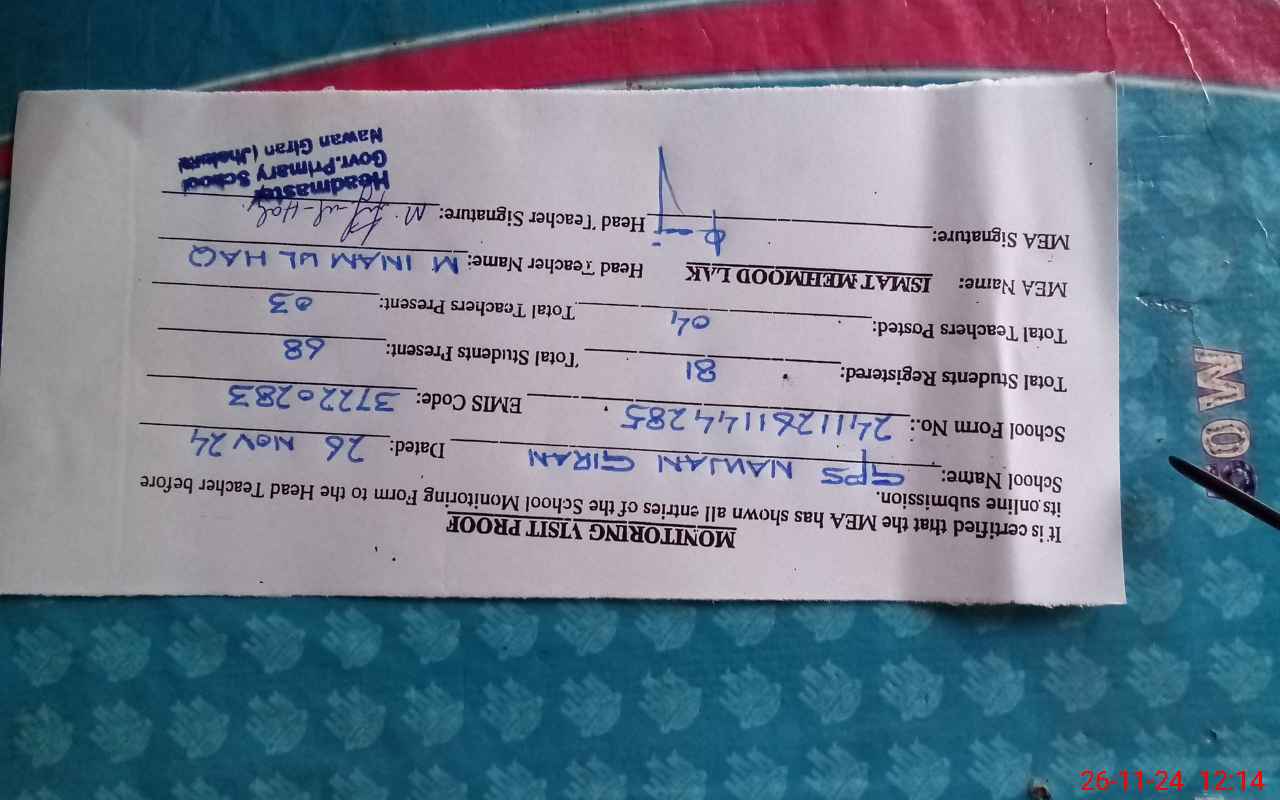 MONITORING VISIT PROOF
It is certified that the MEA has shown all entries of the School Monitoring Form to the Head Teacher before
its online submission.
School Name: GPS NAWAN GIRAN Dated: 26 NOV 24
School Form No.: 241126114285 EMIS Code: 37220283
Total Students Registered: 81 Total Students Present: 68
Total Teachers Posted: 04 Total Teachers Present: 03
MEA Name: ISMAT MEHMOOD LAK Head Teacher Name: M INAM UL HAQ
MEA Signature: Head Teacher Signature:
Headmaster
Govt. Primary School
Nawan Giran
26-11-24 12:14